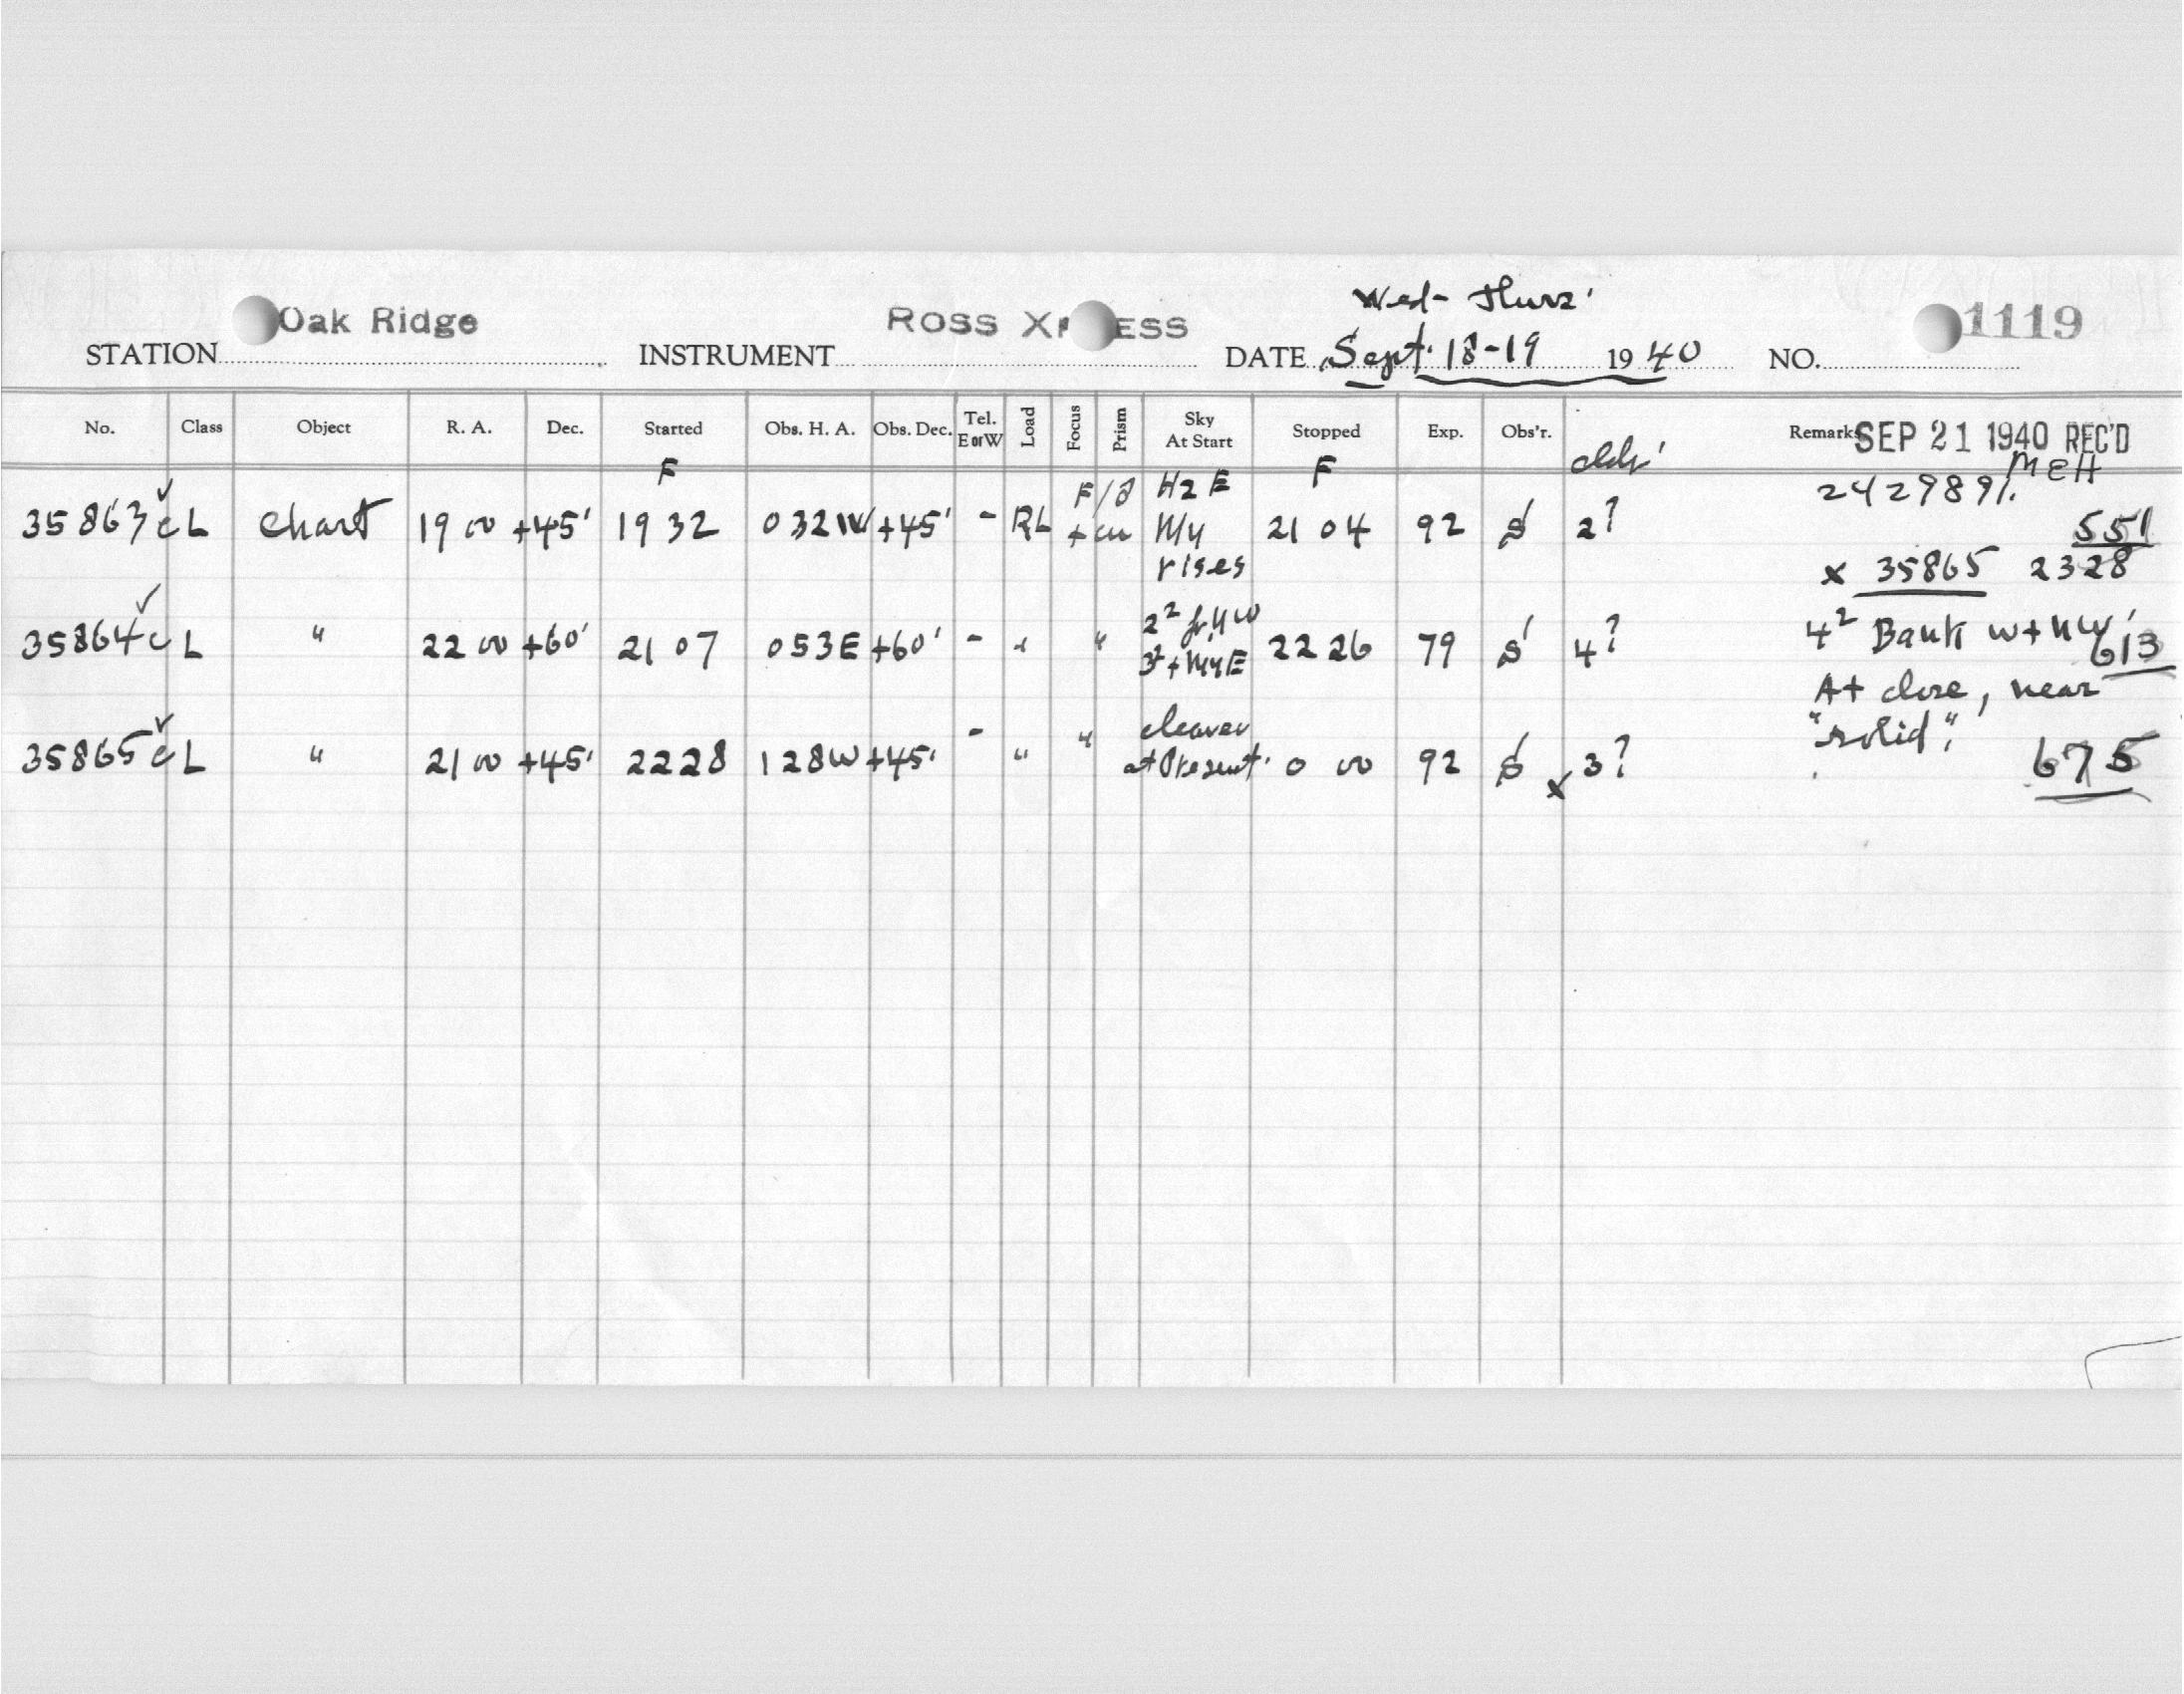 Wed- Thurs'
Oak Ridge ROSS X ESS 1119
STATION INSTRUMENT DATE Sept. 18-19 1940 NO.
No. Class Object R. A. Dec. Started Obs. H. A. Obs. Dec. Tel. E or W Load Focus Prism Sky At Start Stopped Exp. Obs'r. Remarks SEP 21 1940 REC'D
F F MEH
F/8 H2 E 2429891.
35863 c L Chart 19 00 +45' 19 32 0 32 W +45' - RL + cu My 21 04 92 S 2? 551
rises x 35865 2328
2² fr. NW 4² Bank W + NW'
35864 c L " 22 00 +60' 21 07 0 53 E +60' - " " 3² + My E 22 26 79 S' 4? 613
At close, near
clearer "solid".
35865 c L " 21 00 +45' 22 28 1 28 W +45' - " " at Present. 0 00 92 S x 3? 675